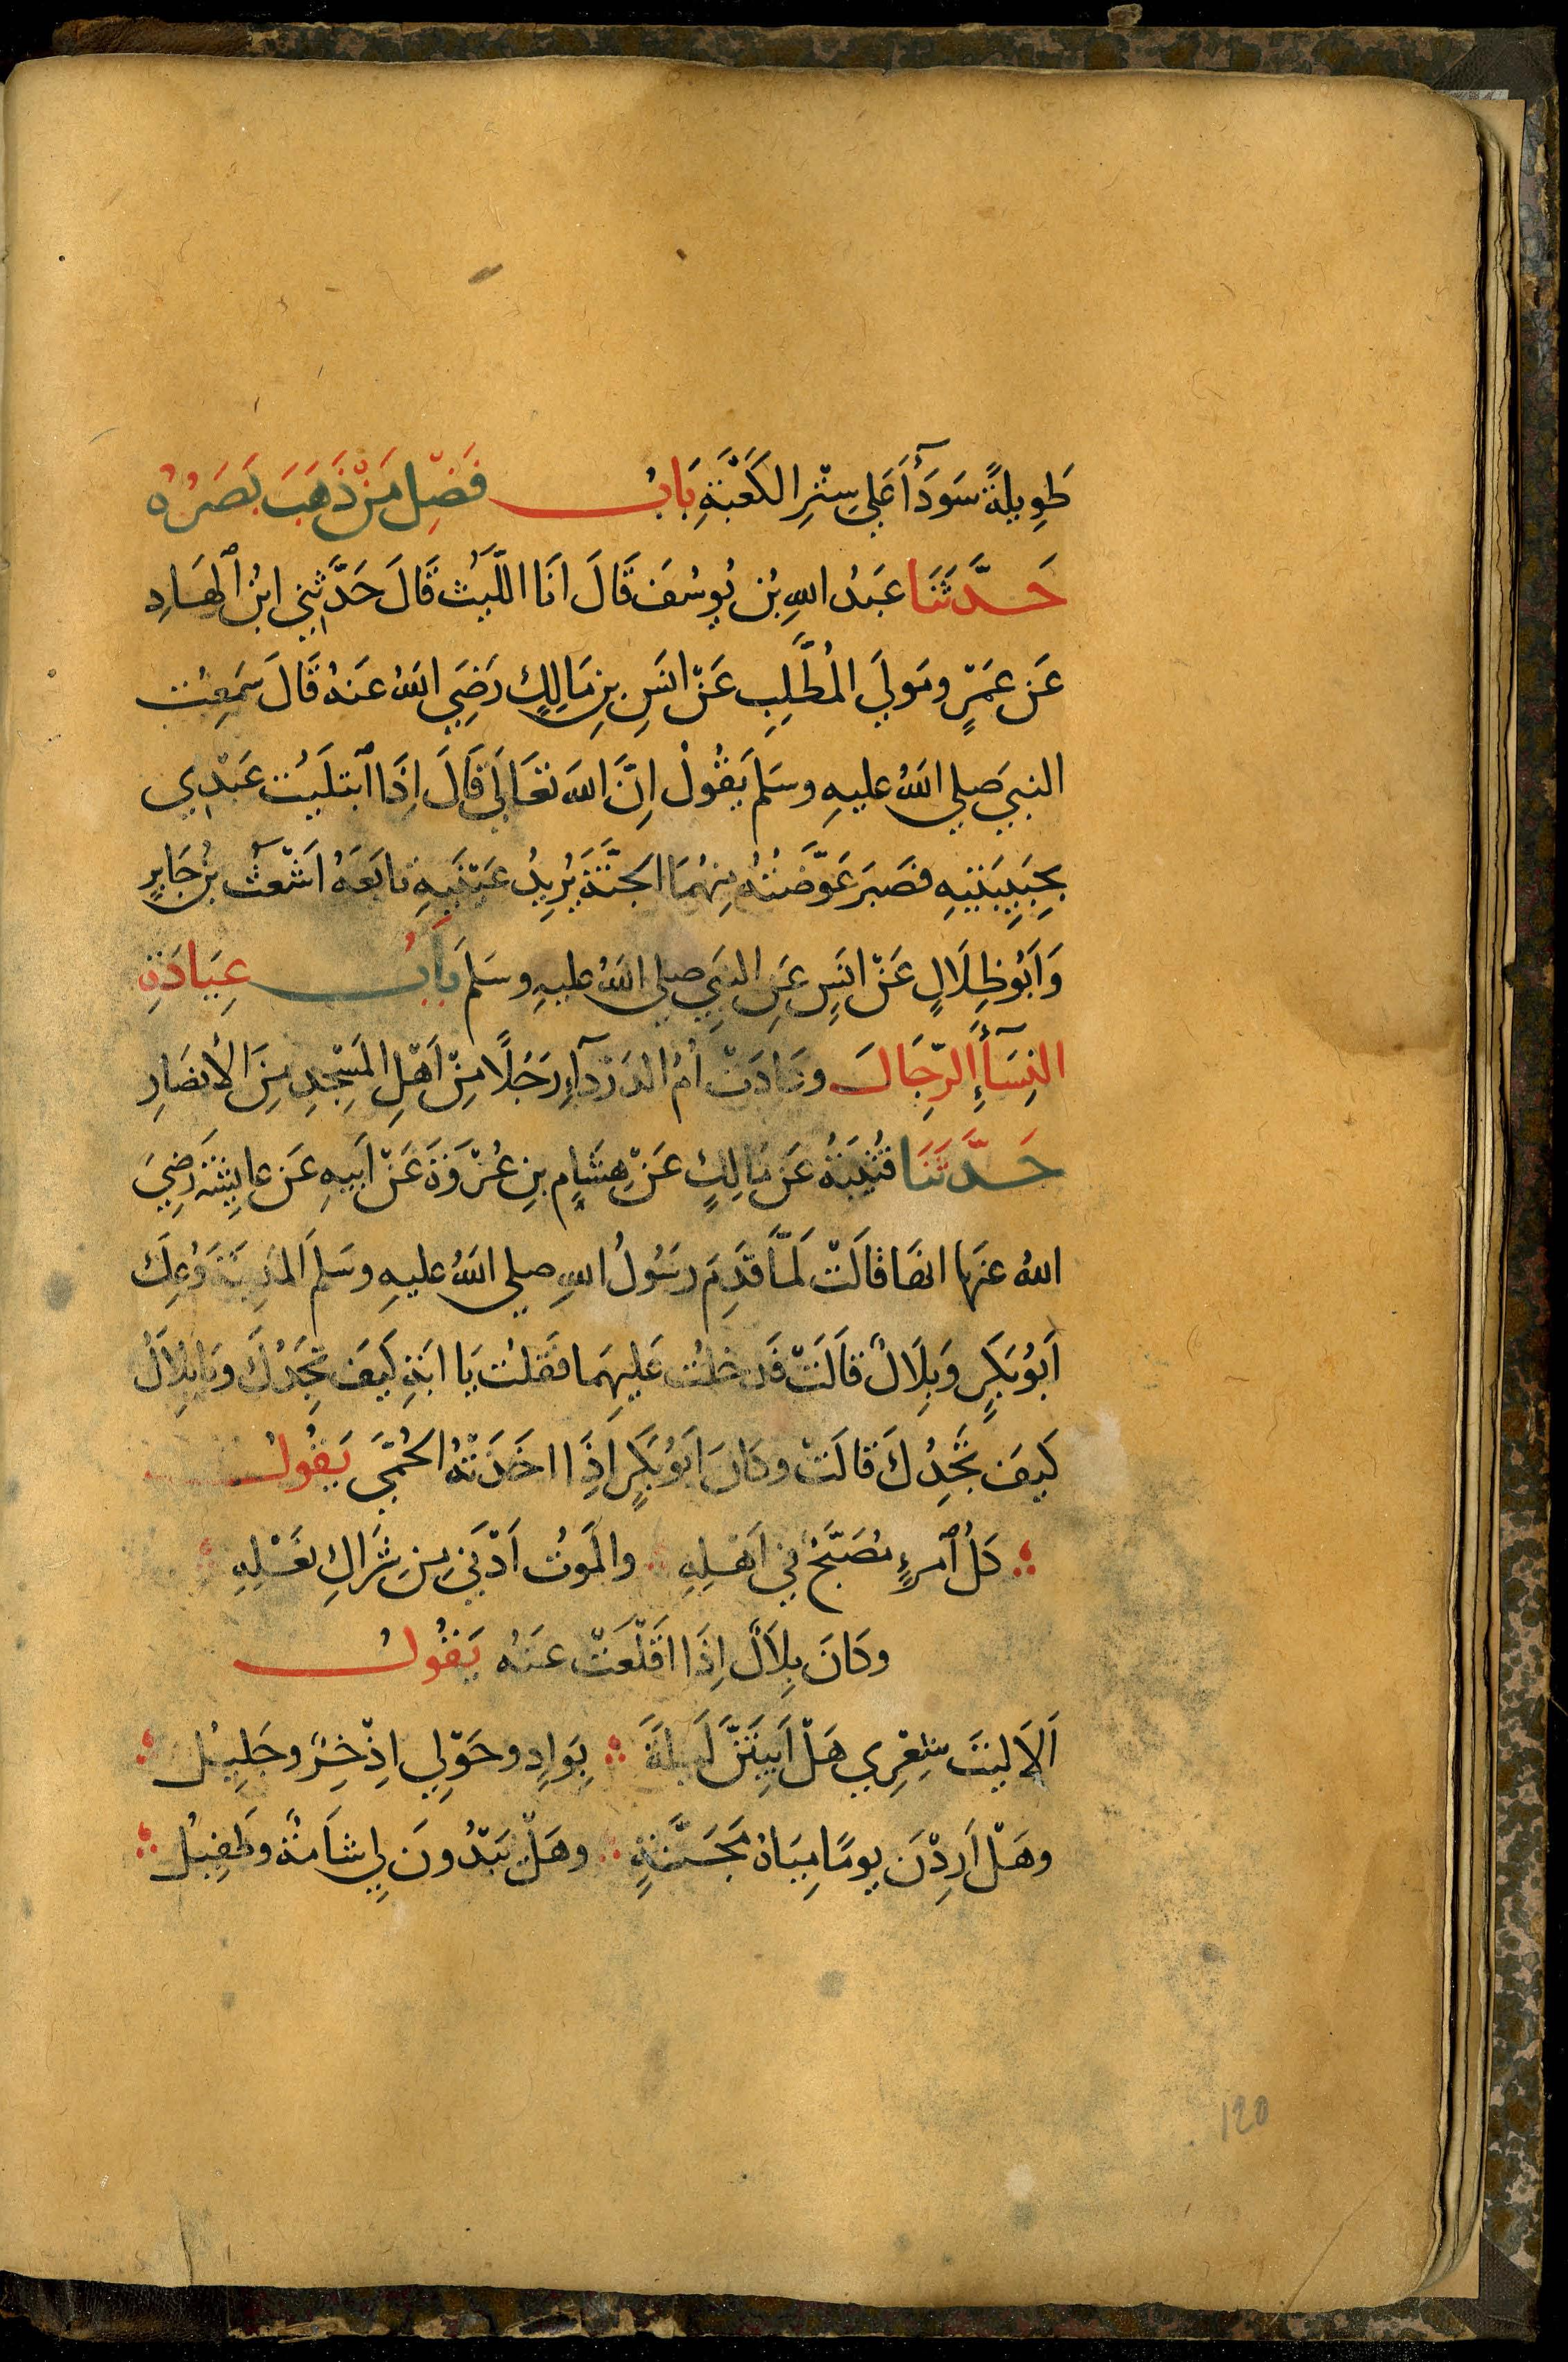 طَوِيلَةً سَوْدَآءَ عَلَي سِتْرِ الكَعْبَةِ بَابُ فَضْلِ مَنْ ذَهَبَ بَصَرُهُ
حَدَّثَنَا عَبْدُ اللهِ بْنُ يُوسُفَ قَالَ انَا اللَّيْثُ قَالَ حَدَّثَنِي ابْنُ الهَادِ
عَن عَمْرٍو مَوْلَي المُطَّلِبِ عَنْ انَسِ بنِ مَالِكٍ رَضِيَ اللهُ عَنهُ قَالَ سَمِعْتُ
النبيَ صلي اللهُ عليهِ وسَلم يَقُولُ اِنَّ اللهَ تعَالَي قَالَ اِذَا ابْتلَيْتُ عَبْدِي
بِحَبِيبَتَيهِ فصَبَرَ عَوَّضْتُهُ مِنْهُمَا الجَنَّةَ يُرِيدُ عَيْنَيهِ تابَعَهُ اَشْعَثُ بْنُ جَابِرٍ
وَاَبُو ظِلَالٍ عَنْ انَسٍ عَنِ النبِيِ صلي اللهُ عليهِ وسَلَم بَابُ عِيَادَةِ
النِسَآءِ الرِّجَالَ وعَادَتْ اُمُّ الدَرْدَآءِ رَجُلًا مِنْ اَهْلِ المَسْجِدِ مِنَ الاَنصَارِ
حَدَّثَنَا قُتَيْبَةُ عَنْ مَالِكٍ عَنْ هِشَامِ بنِ عُرْوَةَ عَنْ اَبيهِ عَن عايِشَةَ رَضِيَ
اللهُ عنهَا انهَا قَالَتْ لَمَّا قَدِمَ رسُولُ اللهِ صلي اللهُ عليهِ وسَلمَ المَدِينَةَ وُعِكَ
اَبُو بَكرٍ وَبِلَالٌ قالَتْ فَدَخلْتُ عَليهِمَا فقُلتُ يَا ابَتِ كَيفَ تَجِدُكَ ويَا بِلَالُ
كَيفَ تَجِدُكَ قَالَتْ وكَانَ اَبُو بَكرٍ اِذَا اخَذَتْهُ الحُمَّي يَقُولُ
كلُ امرِءٍ مُصَبَّحٌ فِي اَهْلِهِ والمَوتُ اَدْنَي مِن شِرَاكِ نَعْلِهِ
وكَانَ بِلَالٌ اِذَا اقْلَعَتْ عَنهُ يَقُولُ
اَلَا ليْتَ شِعْرِي هَلْ اَبِيتَنَّ لَيلَةً بِوَادٍ وحَوْلِي اِذْخِرٌ وجَلِيلُ
وهَلْ اَرِدْنَ يومًا مِيَاهَ مَجَنَّةٍ وهَلْ يَبْدُونَ لِي شَامَةٌ وطَفِيلُ
120